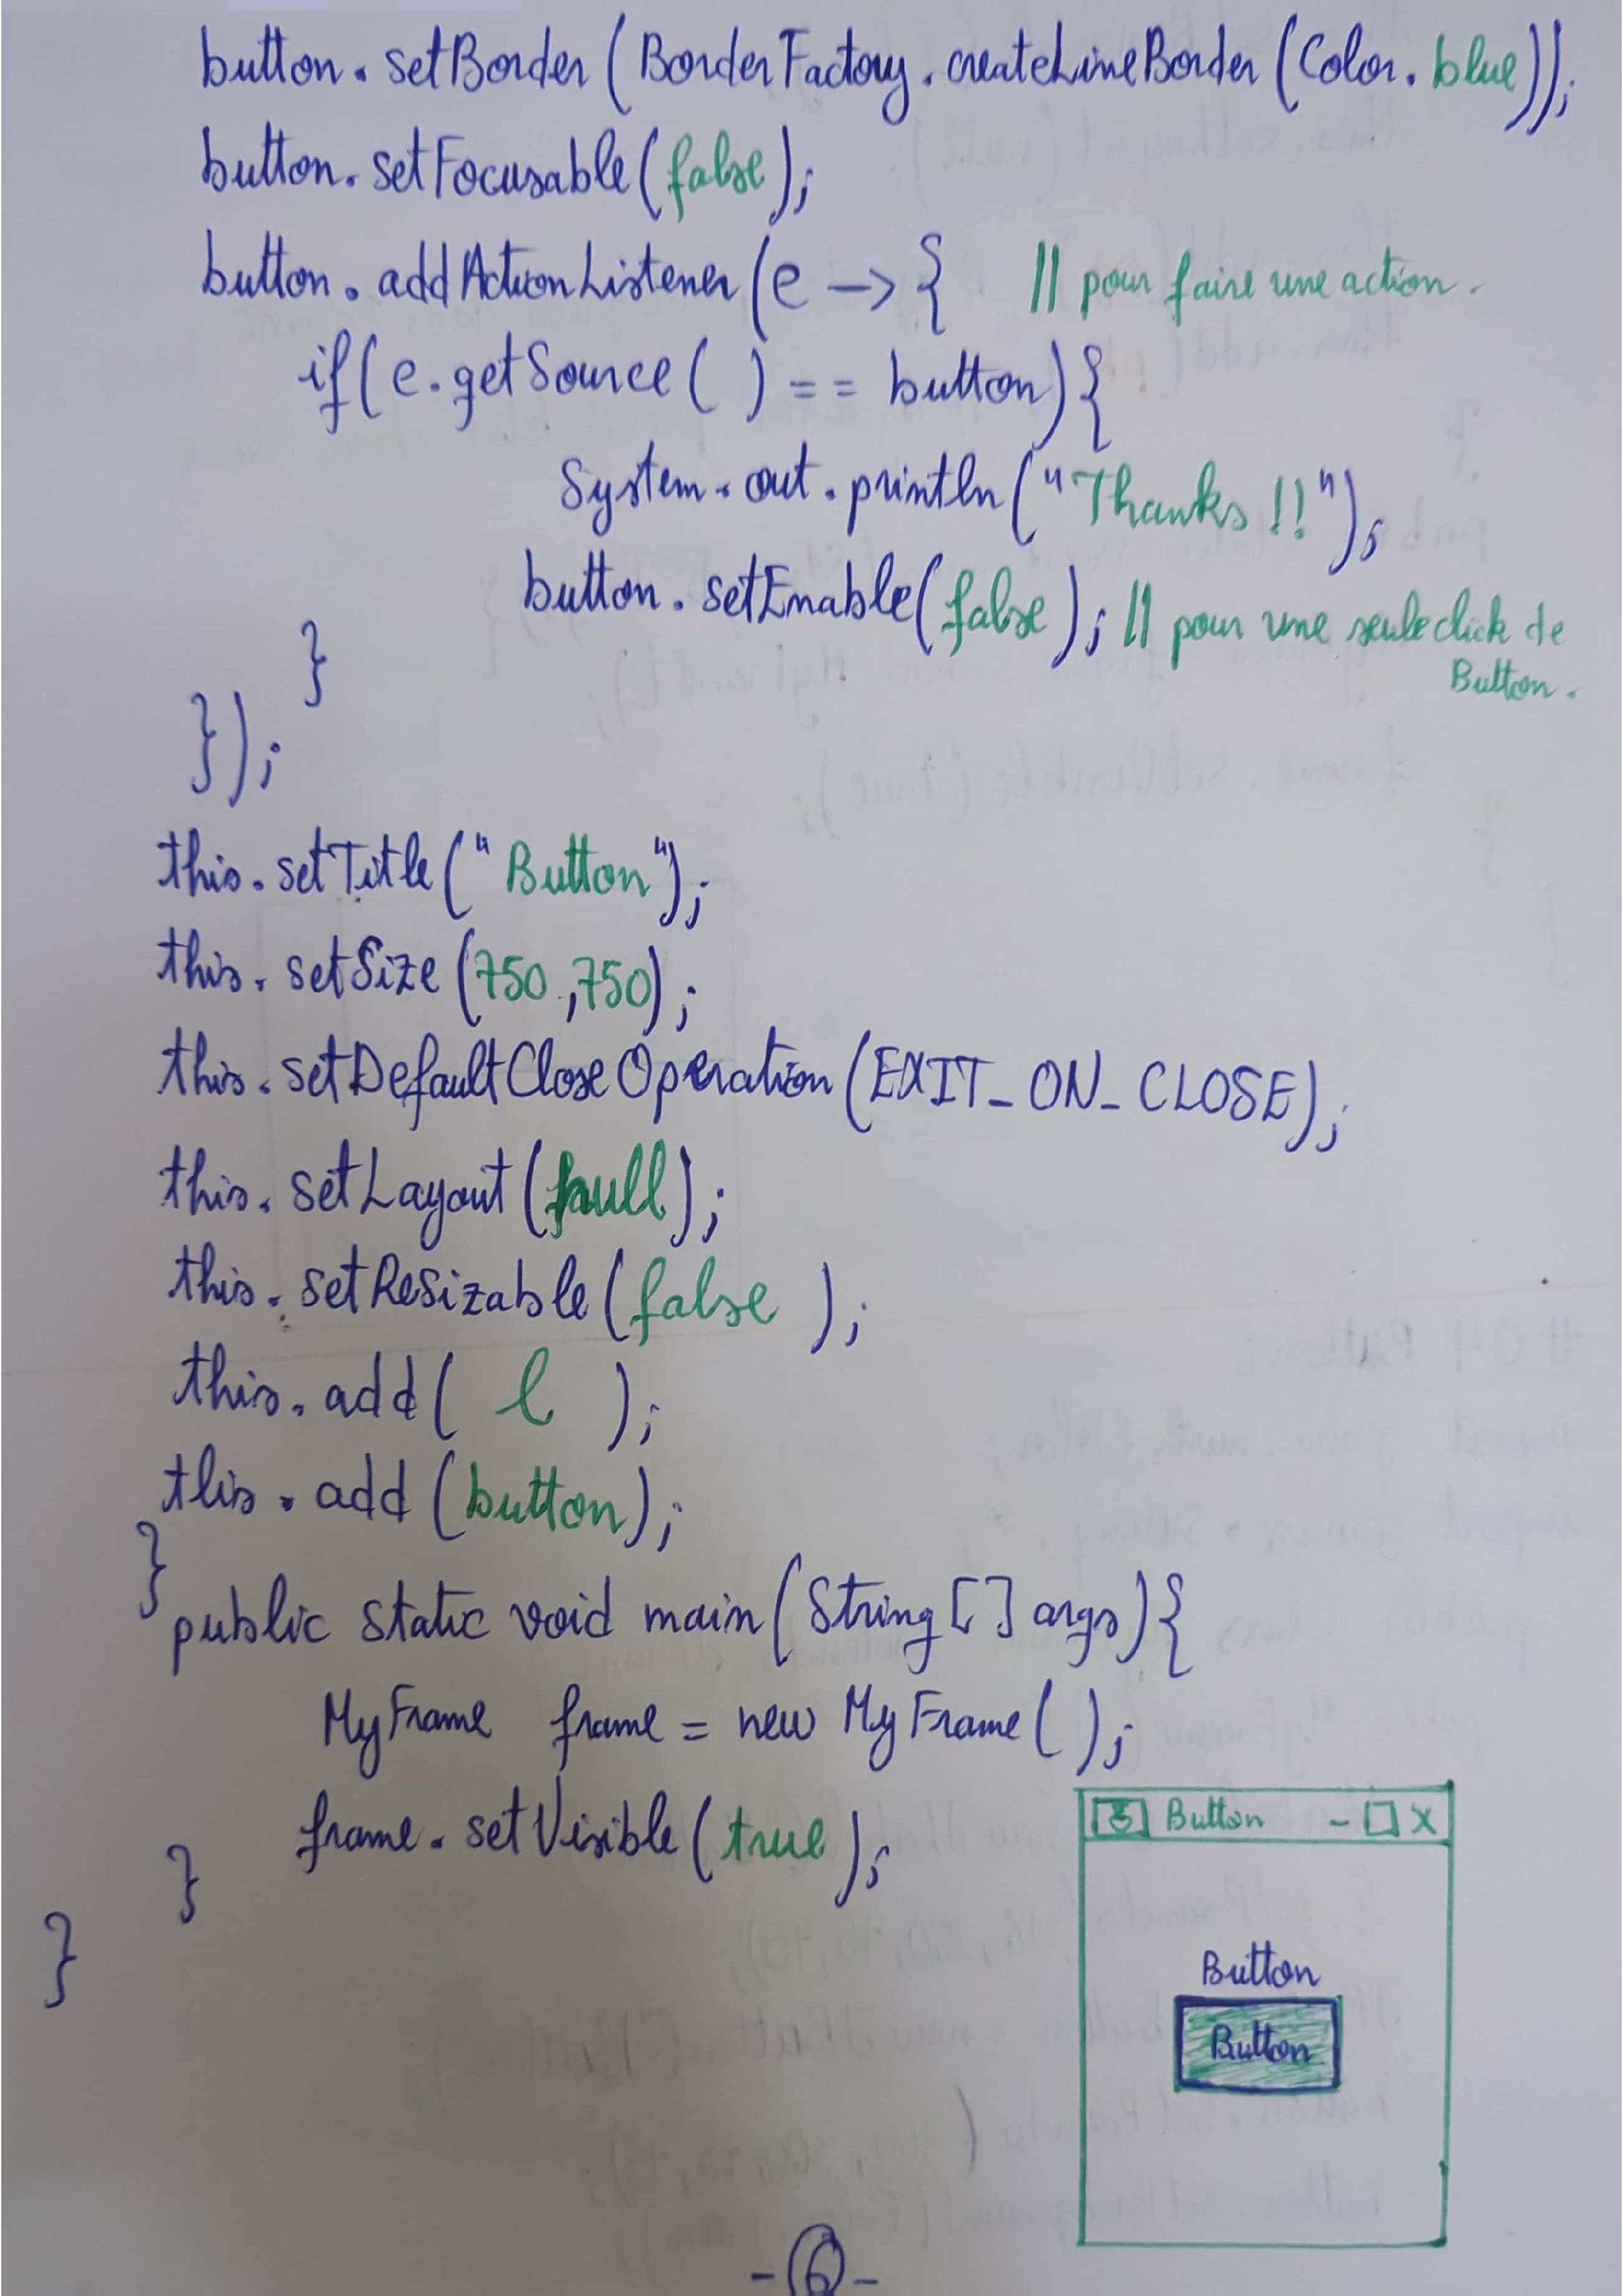 button.setBorder(BorderFactory.createLineBorder(Color.blue));
button.setFocusable(false);
button.addActionListener(e -> { // pour faire une action.
if(e.getSource( ) == button){
System.out.println("Thanks!!");
button.setEnable(false); // pour une seule click de
Button.
}
});
this.setTitle("Button");
this.setSize(750,750);
this.setDefaultCloseOperation(EXIT_ON_CLOSE);
this.setLayout(null);
this.setResizable(false );
this.add( l );
this.add(button);
}
public static void main(String[] args){
MyFrame frame = new MyFrame( );
frame.setVisible(true);
}
}
Button - □ X
Button
Button
-6-